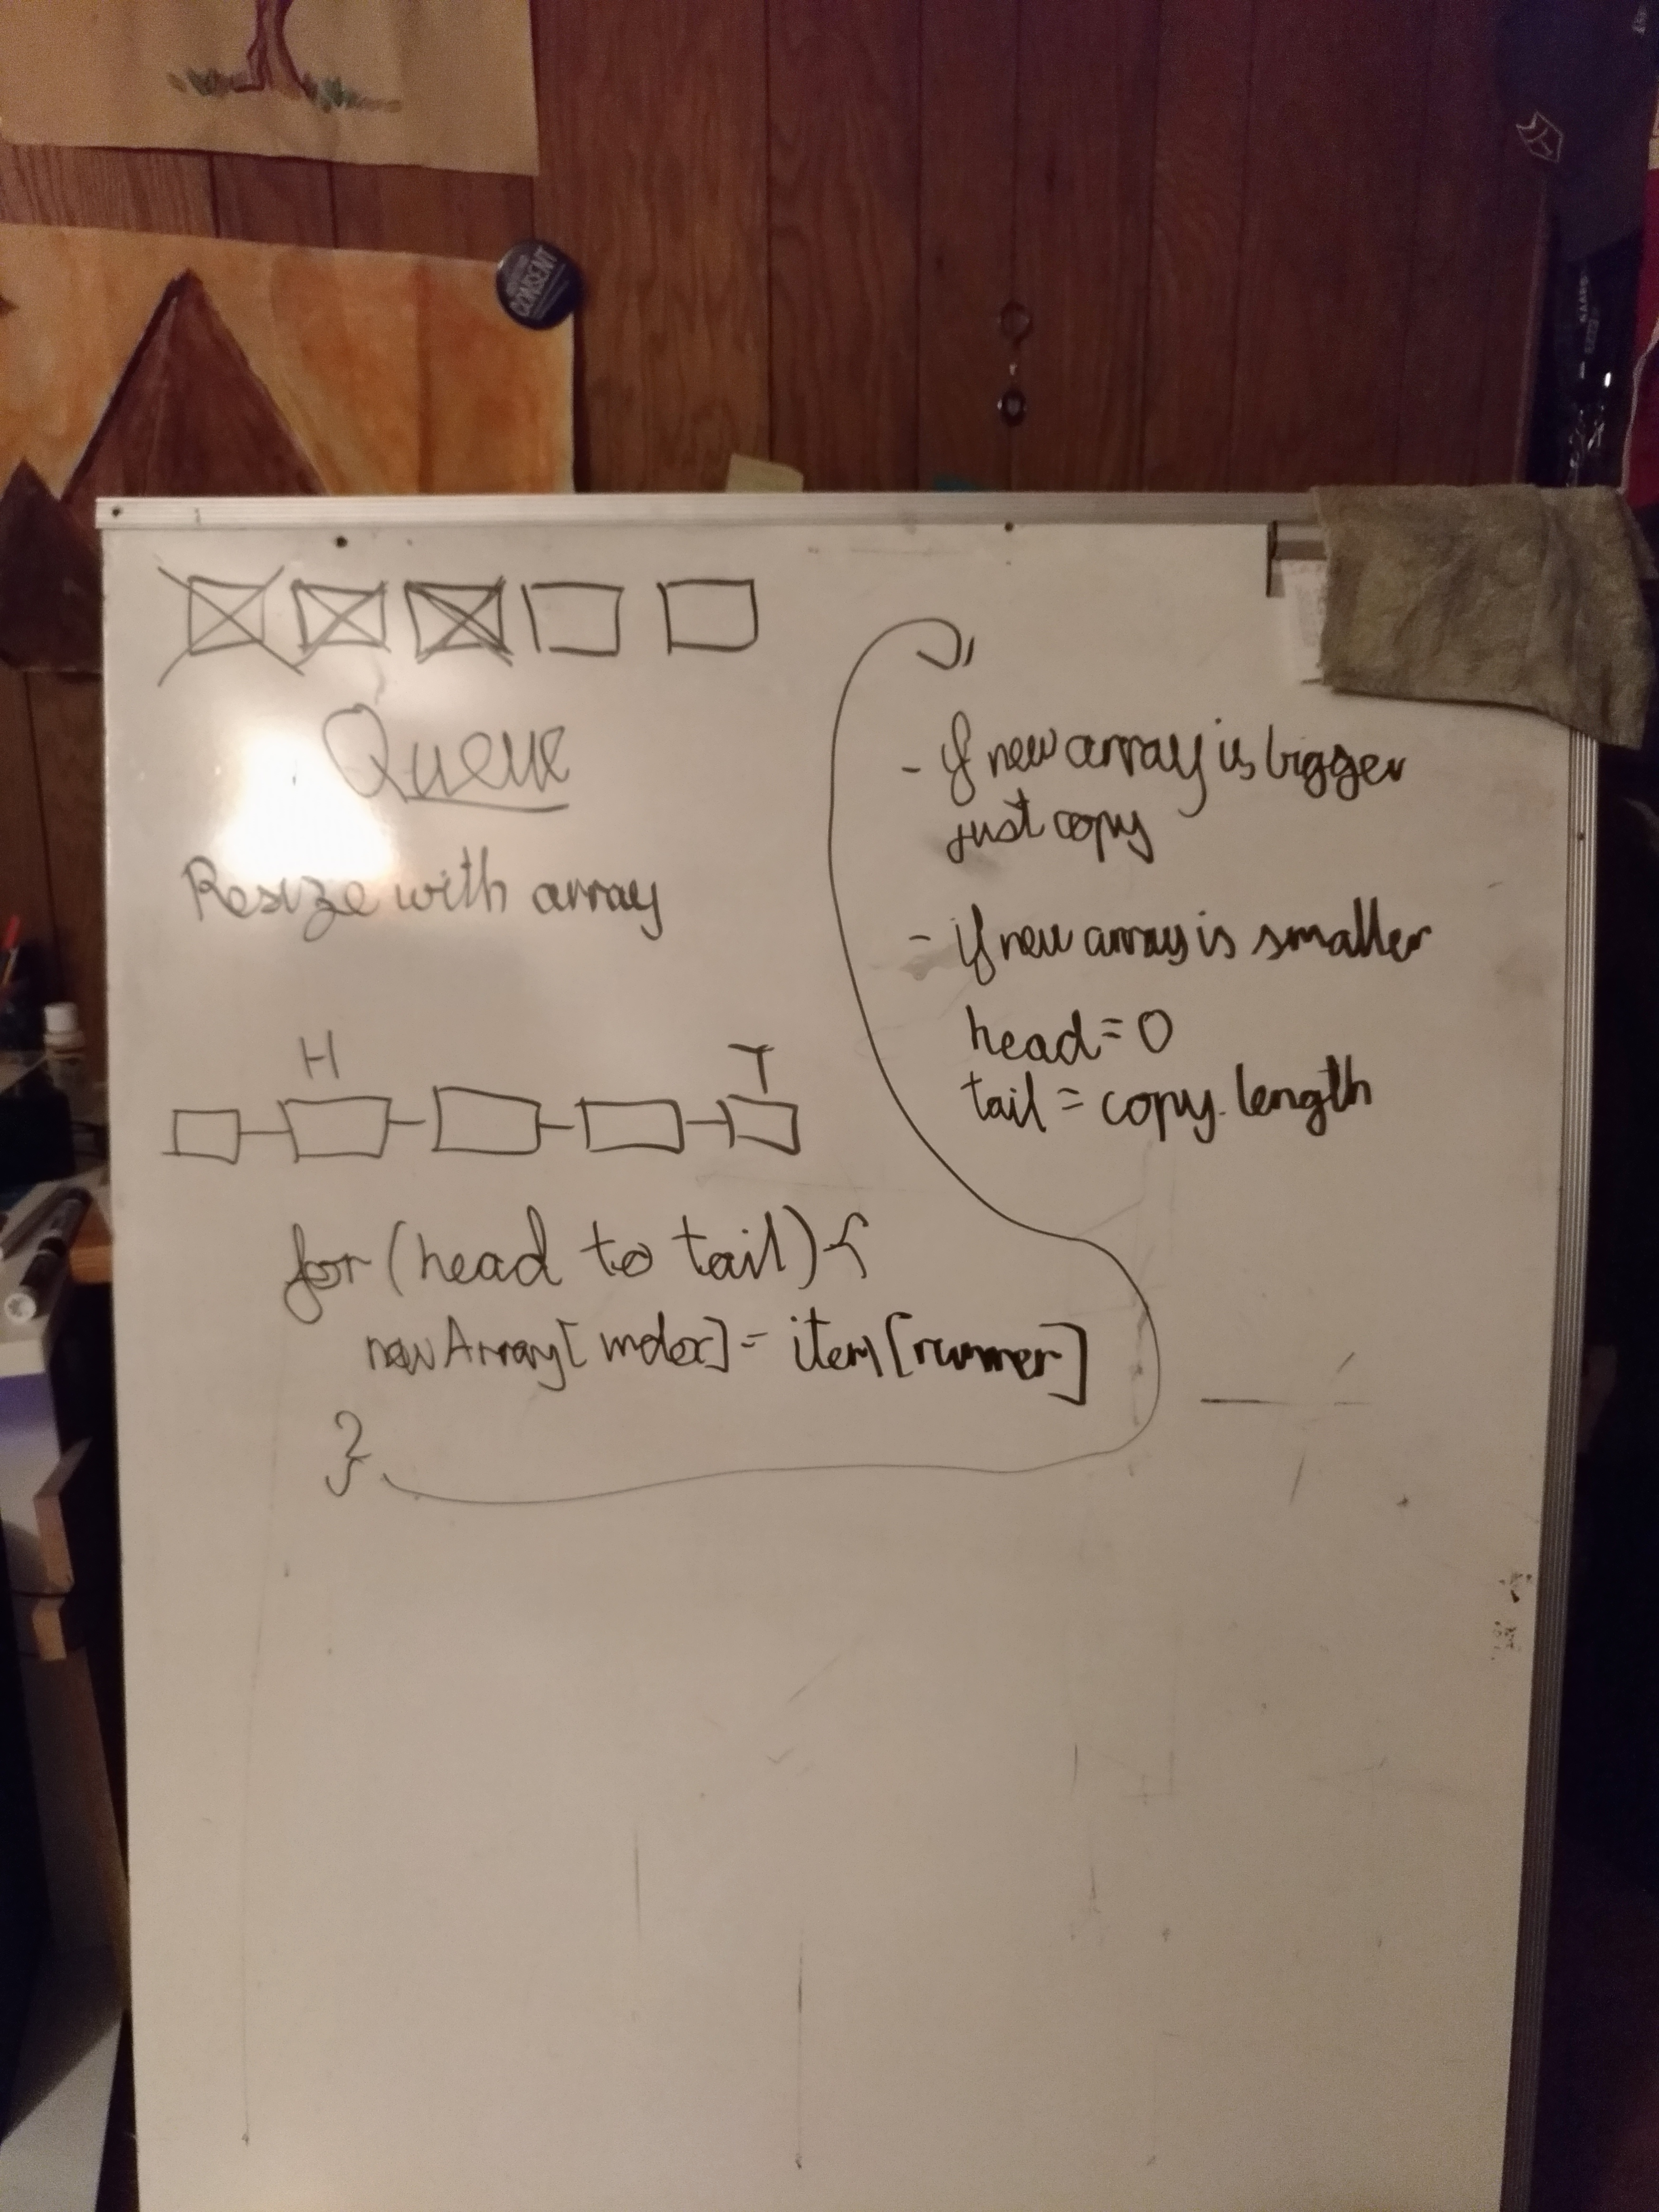 CONSENT
Queue
Resize with array
H T
for (head to tail) {
newArray[index] = item[runner]
}
- if new array is bigger
just copy
- if new array is smaller
head = 0
tail = copy.length